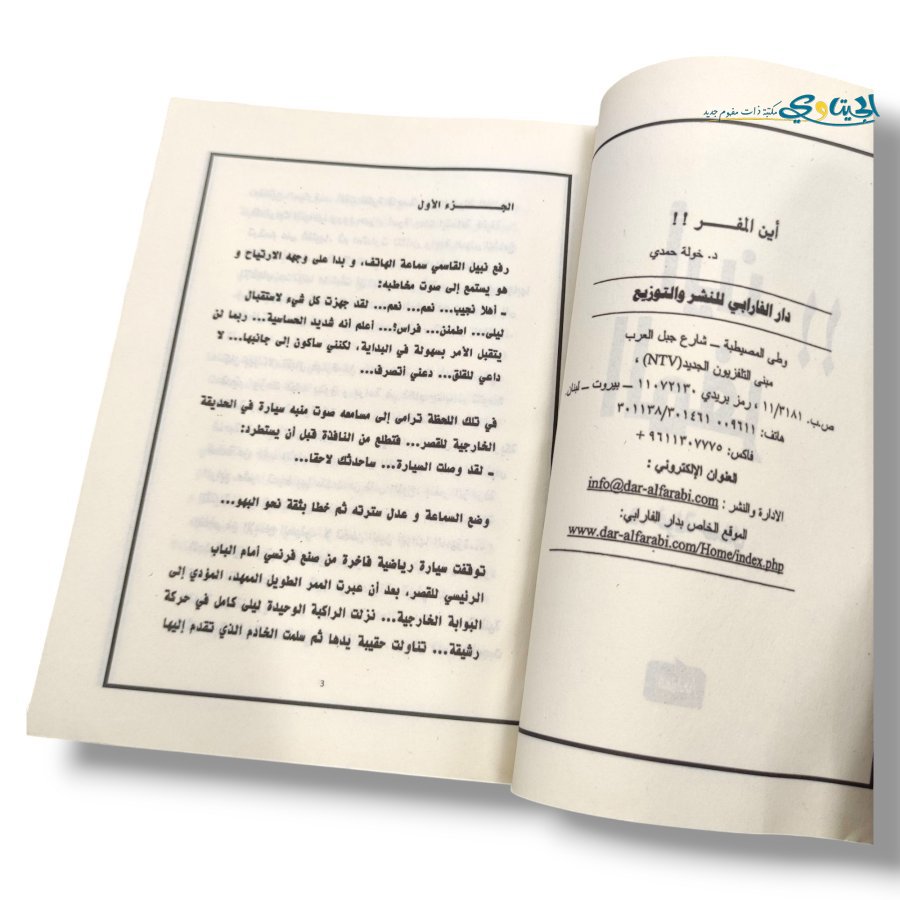 الجيتاوي مكتبة ذات مفهوم جديد
أين المفـــر !!
د. خولة حمدي
دار الفارابي للنشر والتوزيع
وطى المصيطبة – شارع جبل العرب
مبنى التلفزيون الجديد(NTV) ،
ص.ب. ١١/٣١٨١ ، رمز بريدي ١١٠٧٢١٣٠ – بيروت – لبنان.
هاتف: ٠٠٩٦١١ ٣٠١١٣٨/٣٠١٤٦١
فاكس: ٩٦١١٣٠٧٧٧٥ +
العنوان الإلكتروني :
الادارة والنشر : info@dar-alfarabi.com
الموقع الخاص بدار الفارابي:
www.dar-alfarabi.com/Home/index.php
الجـــــزء الأول
رفع نبيل القاسمي سماعة الهاتف، و بدا على وجهه الارتياح و
هو يستمع إلى صوت مخاطبه:
- أهلا نجيب... نعم... نعم... لقد جهزت كل شيء لاستقبال
ليلى... اطمئن... فراس؟... أعلم أنه شديد الحساسية... ربما لن
يتقبل الأمر بسهولة في البداية، لكنني سأكون إلى جانبها... لا
داعي للقلق... دعني أتصرف...
في تلك اللحظة ترامى إلى مسامعه صوت منبه سيارة في الحديقة
الخارجية للقصر... فتطلع من النافذة قبل أن يستطرد:
- لقد وصلت السيارة... سأحدثك لاحقا...
وضع السماعة و عدل سترته ثم خطا بثقة نحو البهو...
توقفت سيارة رياضية فاخرة من صنع فرنسي أمام الباب
الرئيسي للقصر، بعد أن عبرت الممر الطويل الممهد، المؤدي إلى
البوابة الخارجية... نزلت الراكبة الوحيدة ليلى كامل في حركة
رشيقة... تناولت حقيبة يدها ثم سلمت الخادم الذي تقدم إليها
3